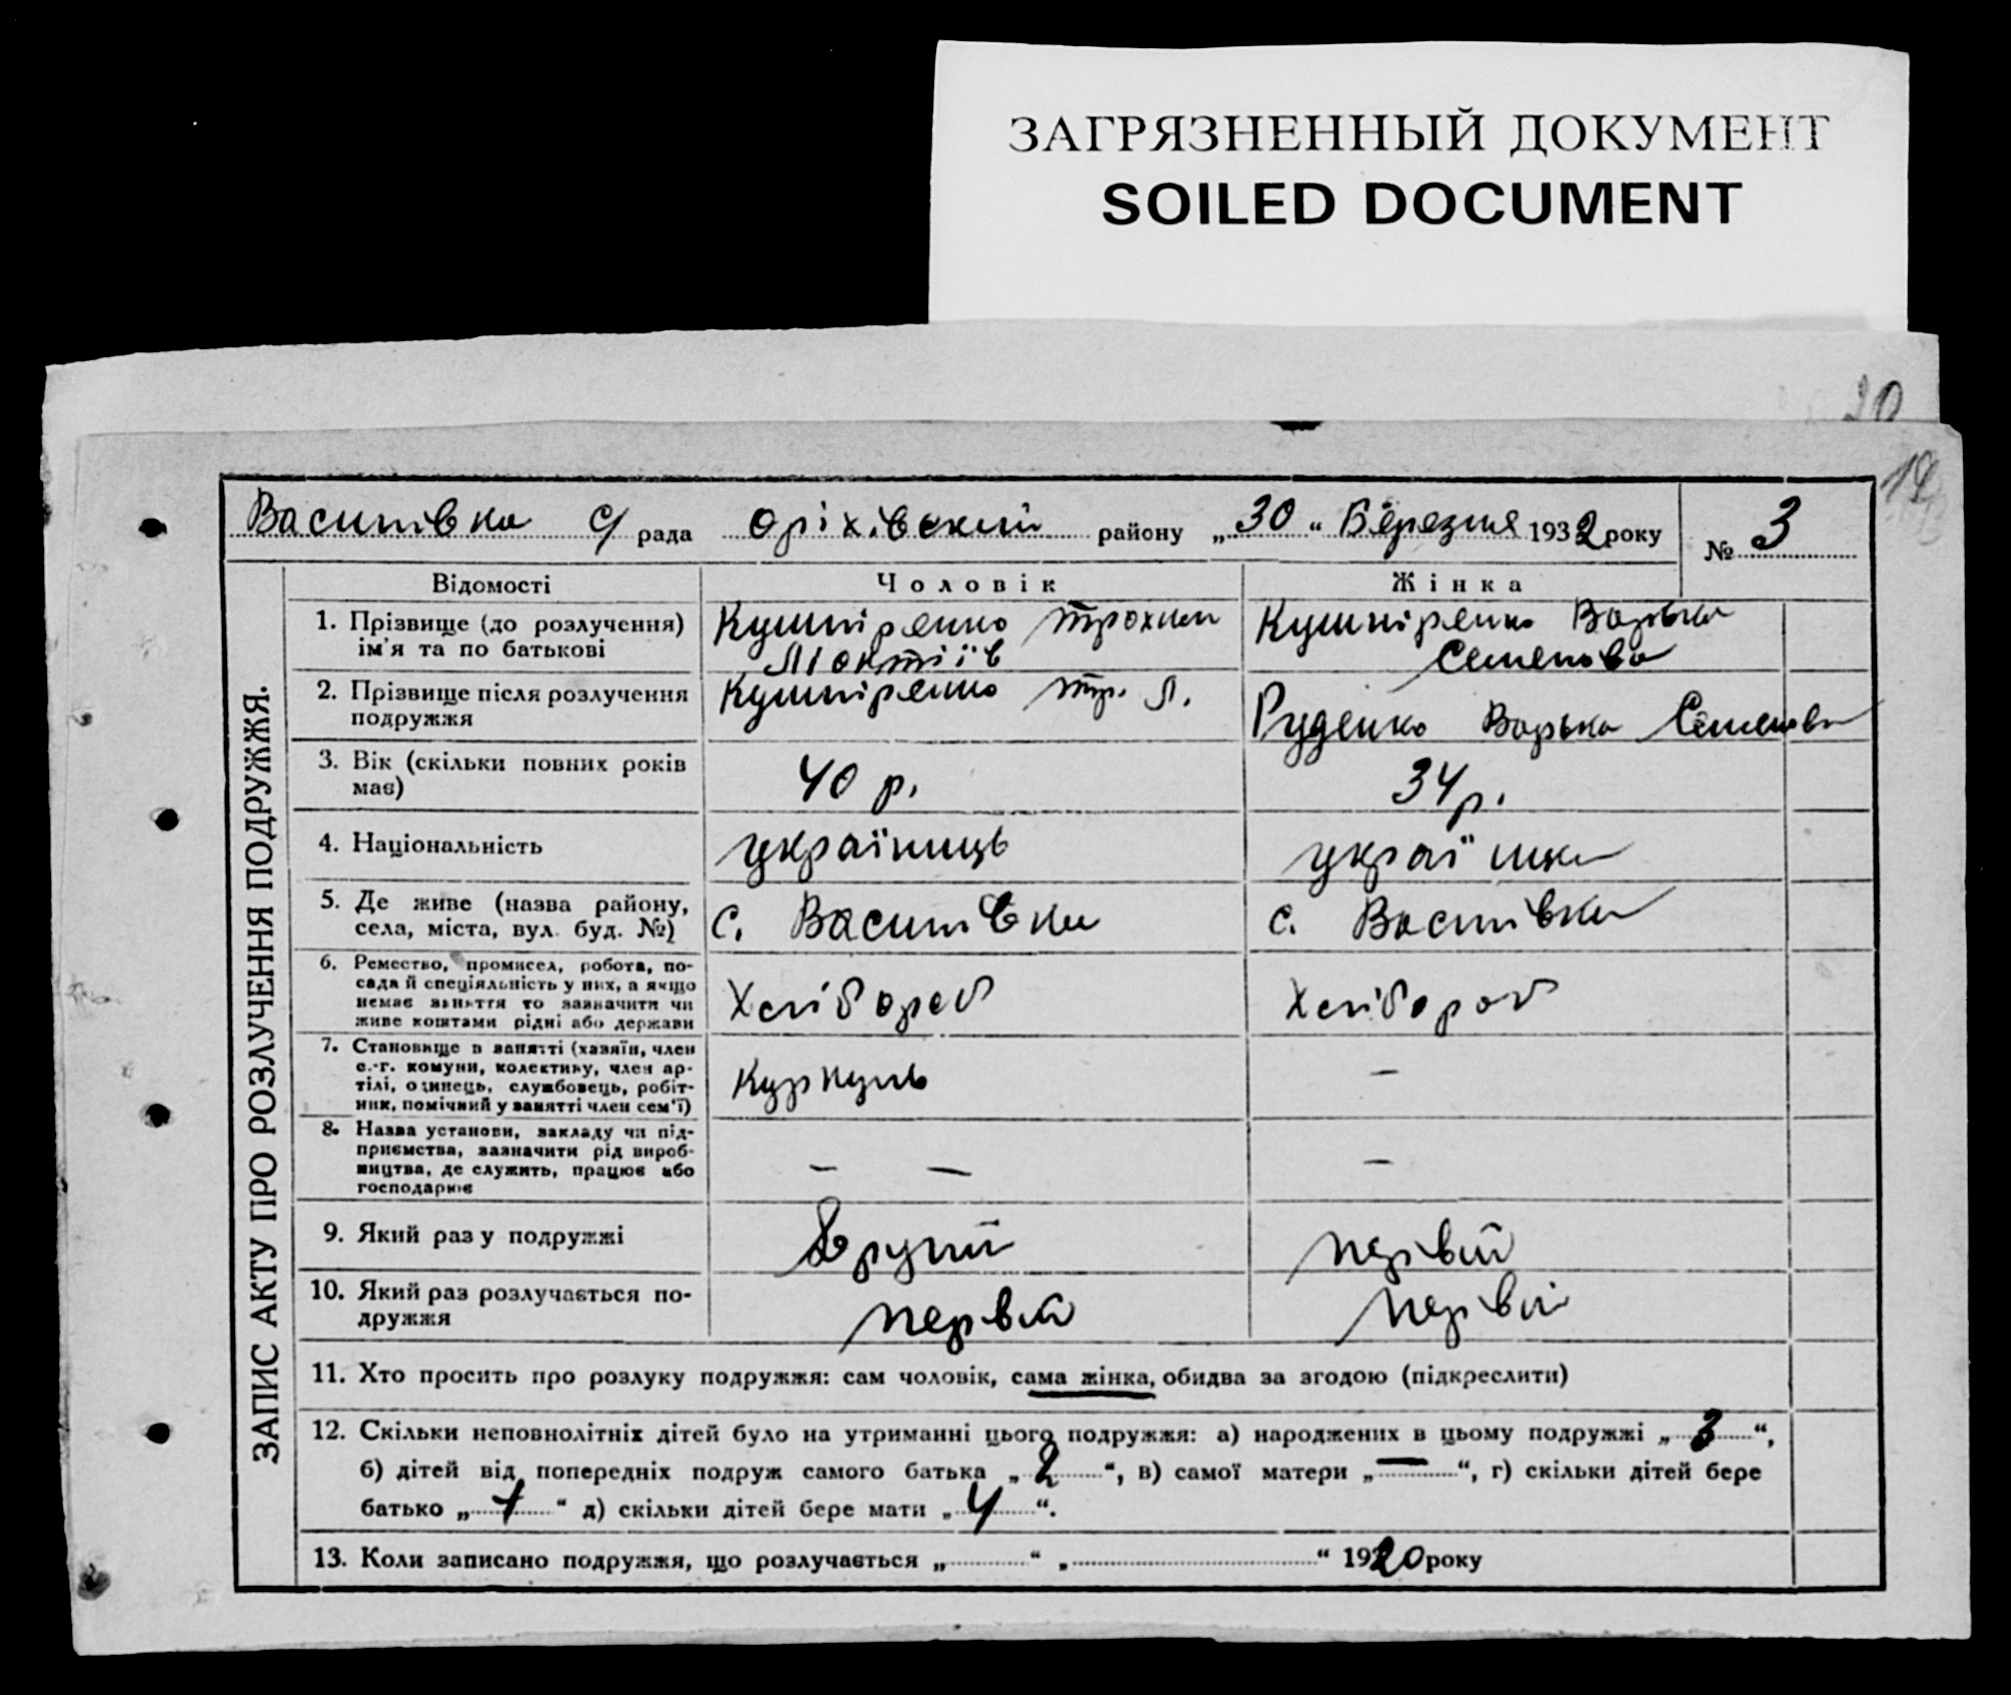 ЗАГРЯЗНЕННЫЙ ДОКУМЕНТ
SOILED DOCUMENT
20
ЗАПИС АКТУ ПРО РОЗЛУЧЕННЯ ПОДРУЖЖЯ.
Василівка с/рада Оріхівский району „30“ Березня 1932 року № 3
Відомості Чоловік Жінка
1. Прізвище (до розлучення) Кушніренко Трохим Кушніренко Варька
ім'я та по батькові Семенова
2. Прізвище після розлучення Кушніренко Тр. Л. Руденко Варька Семенова
подружжя
3. Вік (скільки повних років 40 р. 34 р.
має)
4. Національність українець українка
5. Де живе (назва району, с. Василівка с. Василівка
села, міста, вул. буд. №)
6. Ремество, промисел, робота, по-
сада й спеціяльність у них, а якщо Хлібороб Хлібороб
немає заняття то зазначити чи
живе коштами рідні або держави
7. Становище в занятті (хазяїн, член
с.-г. комуни, колективу, член ар- Куркуль —
тілі, одинець, службовець, робіт-
ник, помічний у занятті член сем'ї)
8. Назва установи, закладу чи під-
приємства, зазначити рід вироб- — — —
ництва, де служить, працює або
господарює
9. Який раз у подружжі Другий первий
10. Який раз розлучається по- первий первий
дружжя
11. Хто просить про розлуку подружжя: сам чоловік, сама жінка, обидва за згодою (підкреслити)
12. Скільки неповнолітніх дітей було на утриманні цього подружжя: а) народжених в цьому подружжі „3“,
б) дітей від попередніх подруж самого батька „2“, в) самої матери „—“, г) скільки дітей бере
батько „1“ д) скільки дітей бере мати „4“.
13. Коли записано подружжя, що розлучається „ “ „ “ 1920 року